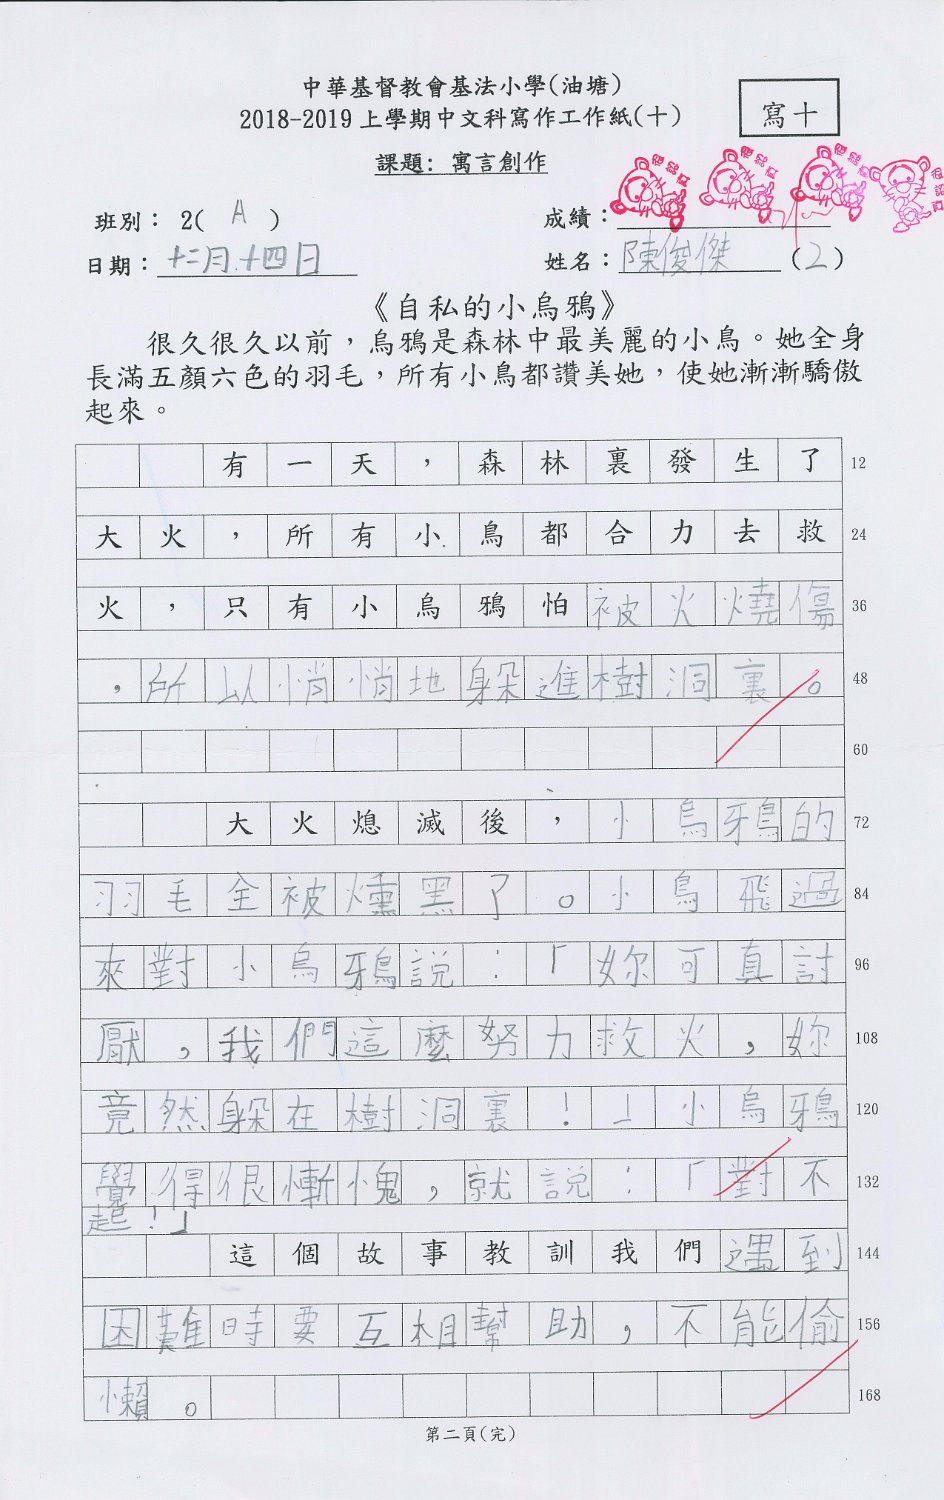 中華基督教會基法小學(油塘)
2018-2019上學期中文科寫作工作紙(十)
寫十
課題：寓言創作
班別：2( A )
成績：
日期：十二月十四日
姓名：陳俊傑(2)
《自私的小烏鴉》
很久很久以前，烏鴉是森林中最美麗的小鳥。她全身
長滿五顏六色的羽毛，所有小鳥都讚美她，使她漸漸驕傲
起來。
有一天，森林裏發生了 12
大火，所有小鳥都合力去救 24
火，只有小烏鴉怕被火燒傷 36
，所以悄悄地躲進樹洞裏。 48
60
大火熄滅後，小烏鴉的 72
羽毛全被燻黑了。小鳥飛過 84
來對小烏鴉說：「妳可真討 96
厭，我們這麼努力救火，妳 108
竟然躲在樹洞裏！」小烏鴉 120
覺得很慚愧，就說：「對不 132
起！」
這個故事教訓我們遇到 144
困難時要互相幫助，不能偷 156
懶。 168
第二頁(完)